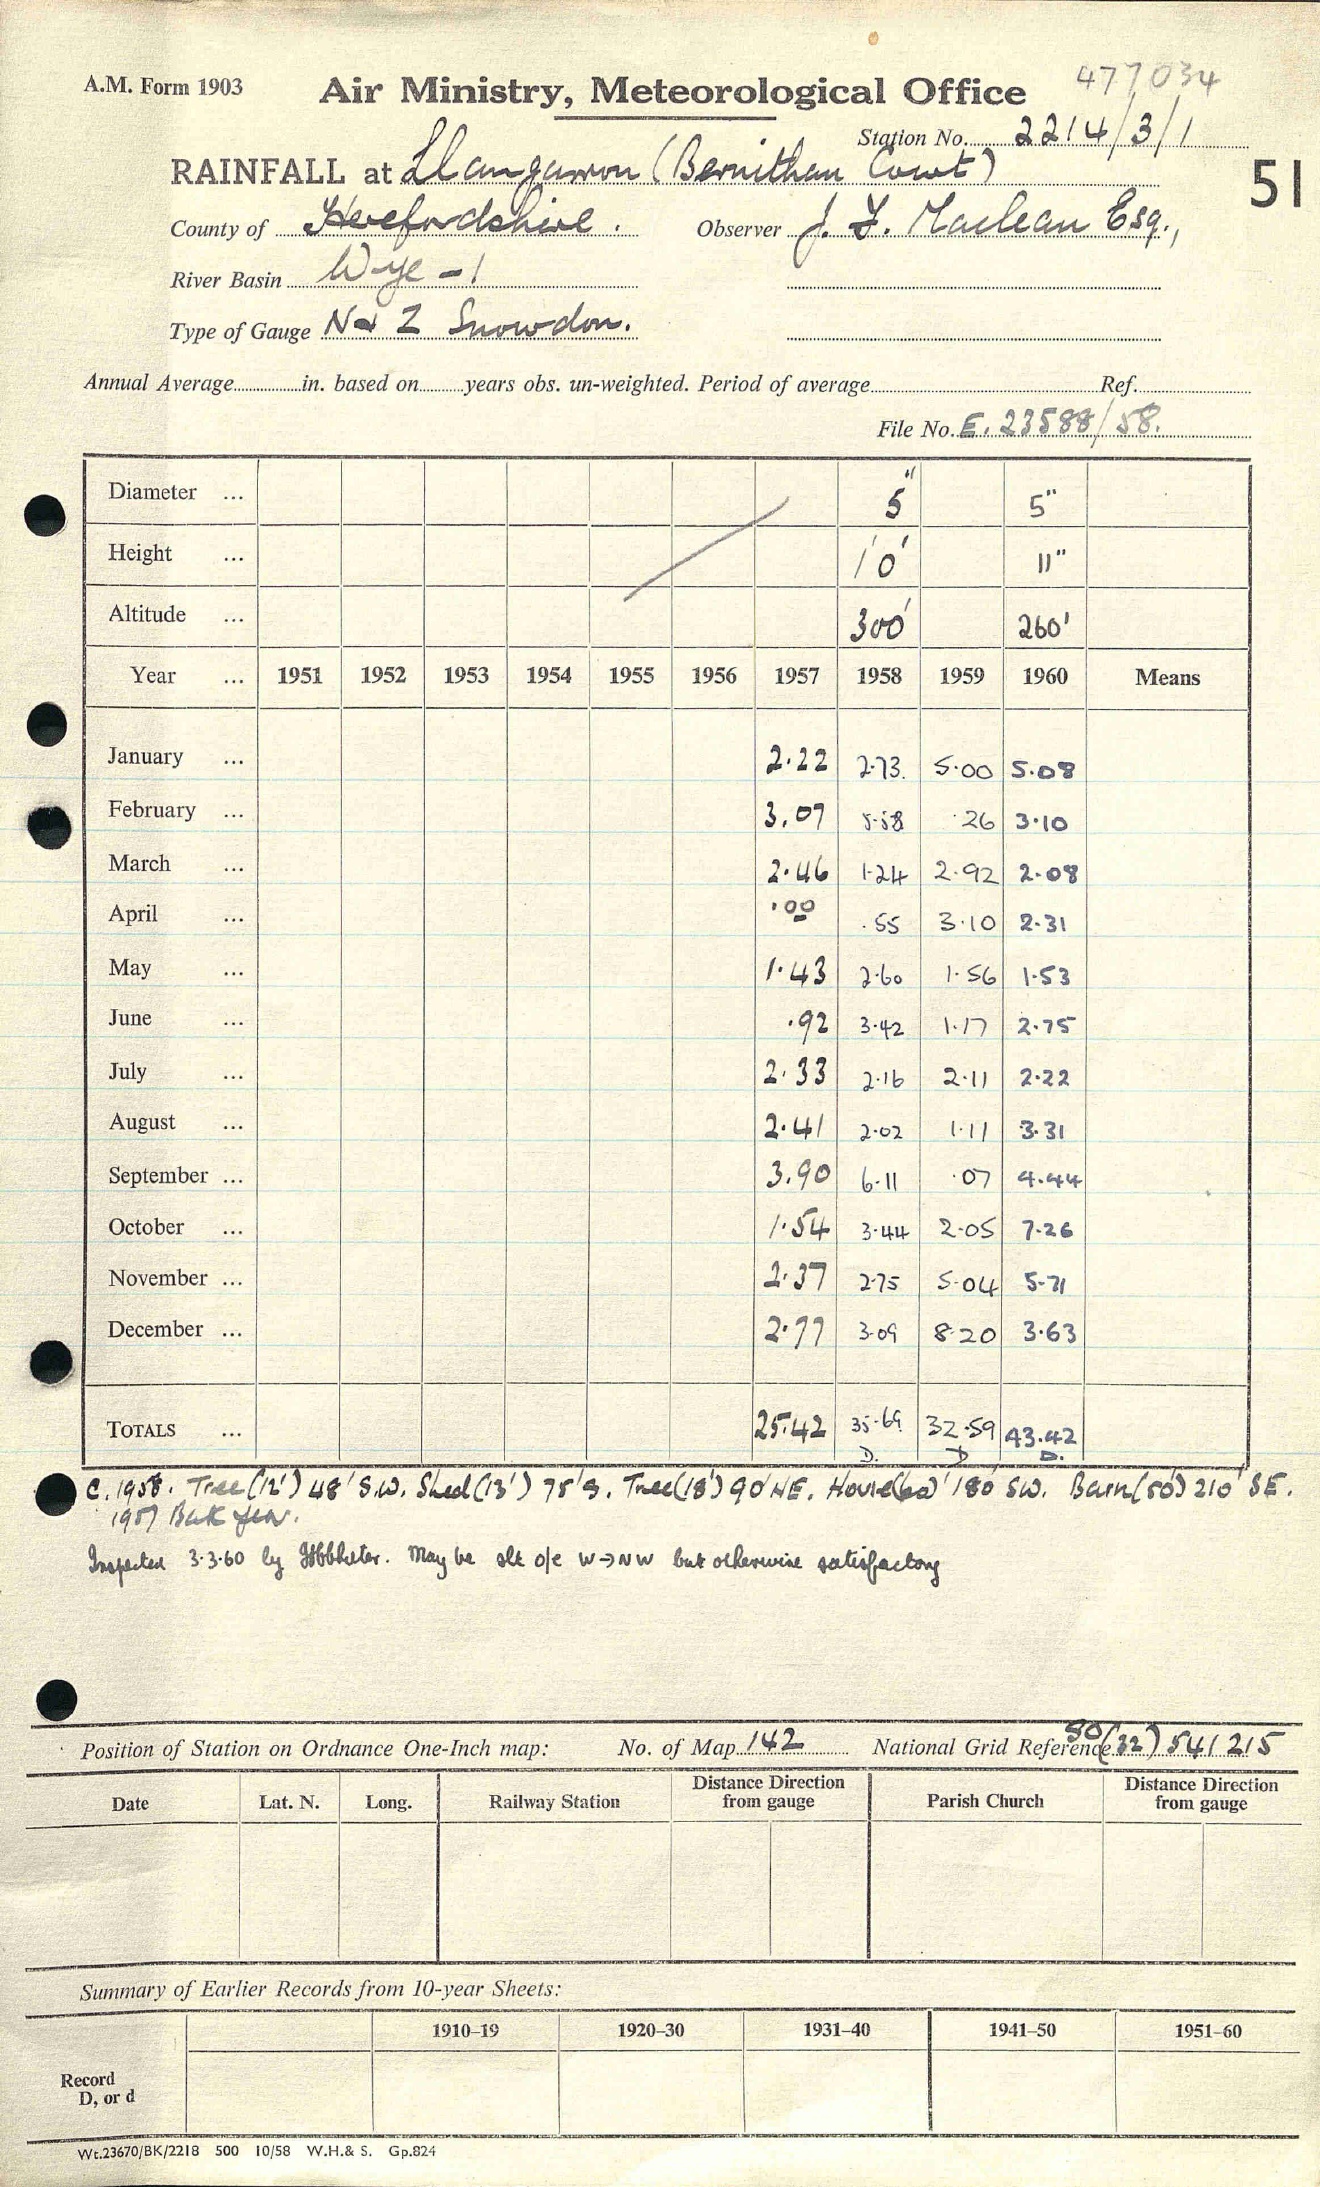 477034
A.M. Form 1903 Air Ministry, Meteorological Office
Station No. 2214/3/1
RAINFALL at Llangarron (Bernithan Court) 51
County of Herefordshire. Observer J. F. Maclean Esq.,
River Basin Wye - 1
Type of Gauge N & Z Snowdon.
Annual Average in. based on years obs. un-weighted. Period of average Ref.
File No. E. 23588/58.
Diameter ... 5" 5"
Height ... 1'0" 11"
Altitude ... 300' 260'
Year ... 1951 1952 1953 1954 1955 1956 1957 1958 1959 1960 Means
January ... 2.22 2.73 5.00 5.08
February ... 3.07 5.58 .26 3.10
March ... 2.46 1.24 2.92 2.08
April ... .00 .55 3.10 2.31
May ... 1.43 2.60 1.56 1.53
June ... .92 3.42 1.17 2.75
July ... 2.33 2.16 2.11 2.22
August ... 2.41 2.02 1.11 3.31
September ... 3.90 6.11 .07 4.44
October ... 1.54 3.44 2.05 7.26
November ... 2.37 2.75 5.04 5.71
December ... 2.77 3.09 8.20 3.63
TOTALS ... 25.42 35.69 32.59 43.42
D. D D.
C. 1958. Tree (12') 48' S.W. Shed (13') 75' S. Tree (18') 90' NE. House (60') 180' SW. Barn (50') 210' SE.
1957 Back
Inspected 3.3.60 by May be slt o/e W→NW but otherwise satisfactory
Position of Station on Ordnance One-Inch map: No. of Map 142 National Grid Reference SO (32) 541 215
Date Lat. N. Long. Railway Station Distance Direction from gauge Parish Church Distance Direction from gauge
Summary of Earlier Records from 10-year Sheets:
1910–19 1920–30 1931–40 1941–50 1951–60
Record
D, or d
Wt.23670/BK/2218 500 10/58 W.H.& S. Gp.824